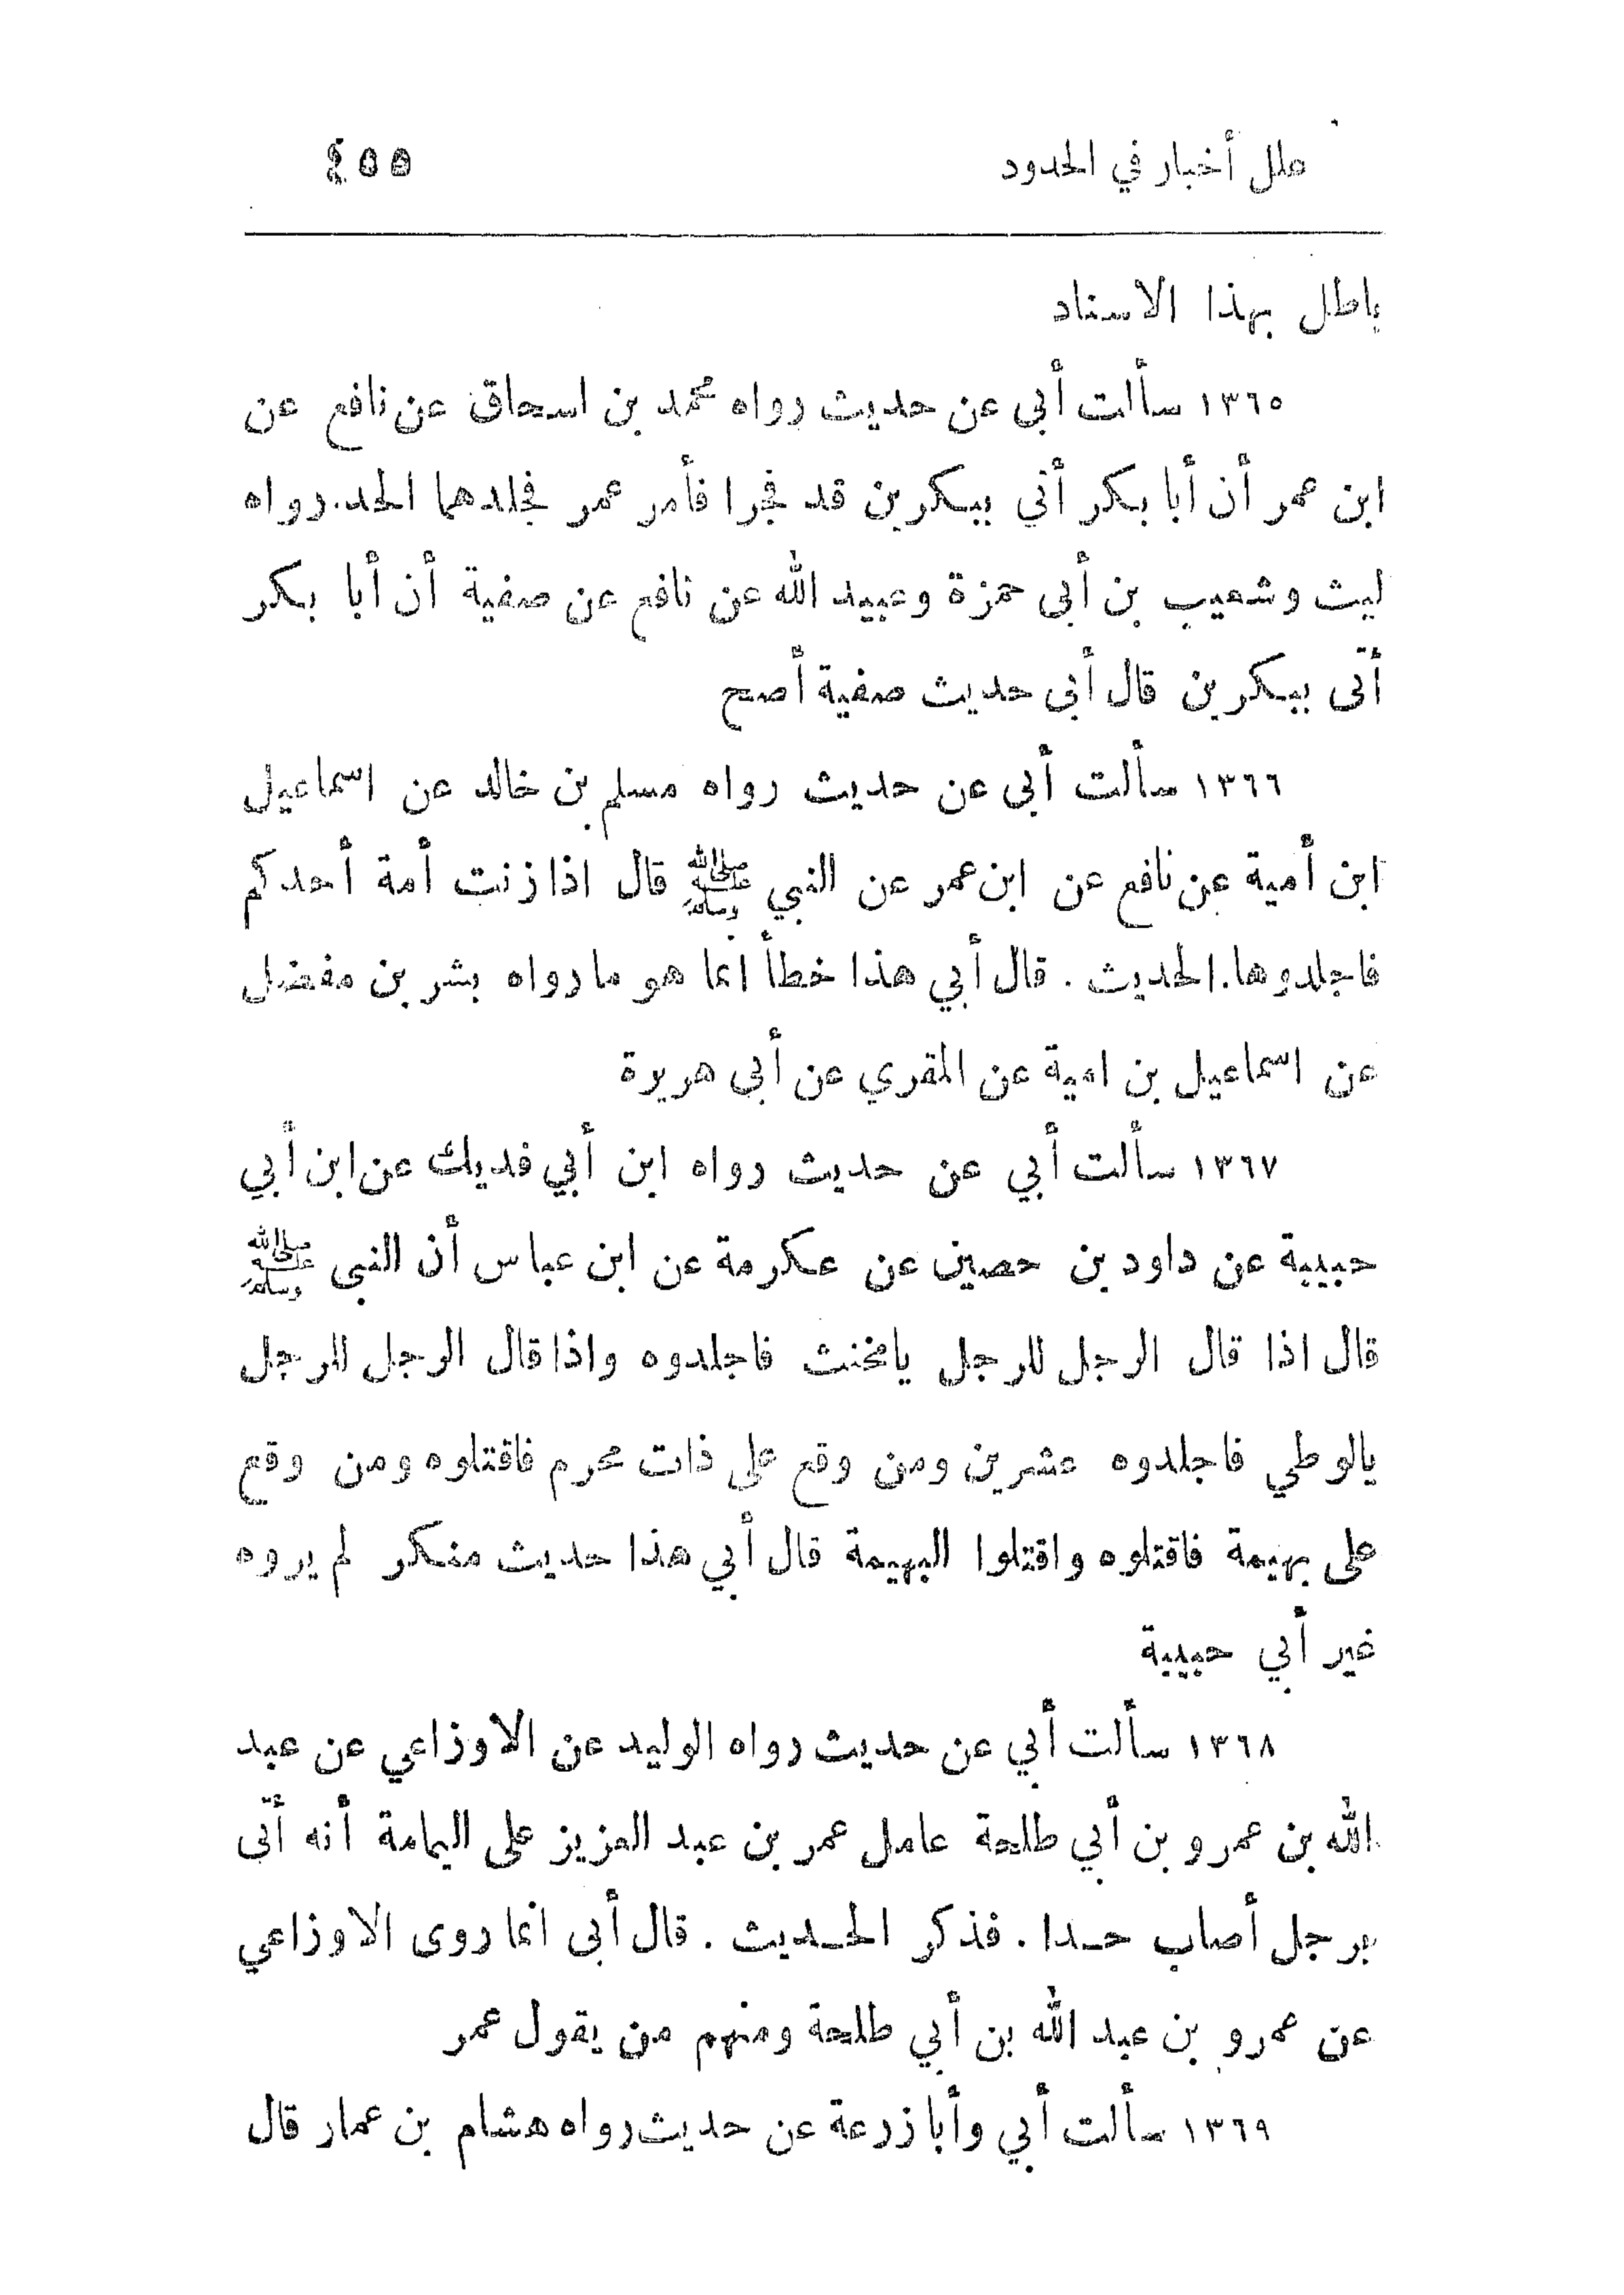 علل أخبار في الحدود ٤٥٥
باطل بهذا الاسناد
١٣٦٥ سألت أبى عن حديث رواه محمد بن اسحاق عن نافع عن
ابن عمر أن أبا بكر أتي ببكرين قد فجرا فأمر عمر فجلدهما الحد. رواه
ليث وشعيب بن أبى حمزة وعبيد الله عن نافع عن صفية أن أبا بكر
أتى ببكرين قال أبى حديث صفية أصح
١٣٦٦ سألت أبى عن حديث رواه مسلم بن خالد عن اسماعيل
ابن أمية عن نافع عن ابن عمر عن النبي ﷺ قال اذا زنت أمة أحدكم
فاجلدوها. الحديث . قال أبي هذا خطأ انما هو ما رواه بشر بن مفضل
عن اسماعيل بن امية عن المقري عن أبى هريرة
١٣٦٧ سألت أبي عن حديث رواه ابن أبي فديك عن ابن أبي
حبيبة عن داود بن حصين عن عكرمة عن ابن عباس أن النبى ﷺ
قال اذا قال الرجل للرجل يا مخنث فاجلدوه واذا قال الرجل للرجل
يالوطي فاجلدوه عشرين ومن وقع على ذات محرم فاقتلوه ومن وقع
على بهيمة فاقتلوه واقتلوا البهيمة قال أبي هذا حديث منكر لم يروه
غير أبي حبيبة
١٣٦٨ سألت أبي عن حديث رواه الوليد عن الاوزاعي عن عبد
الله بن عمرو بن أبي طلحة عامل عمر بن عبد العزيز على اليمامة أنه أتى
برجل أصاب حدا . فذكر الحديث . قال أبى انما روى الاوزاعي
عن عمرو بن عبد الله بن أبي طلحة ومنهم من يقول عمر
١٣٦٩ سألت أبي وأبا زرعة عن حديث رواه هشام بن عمار قال